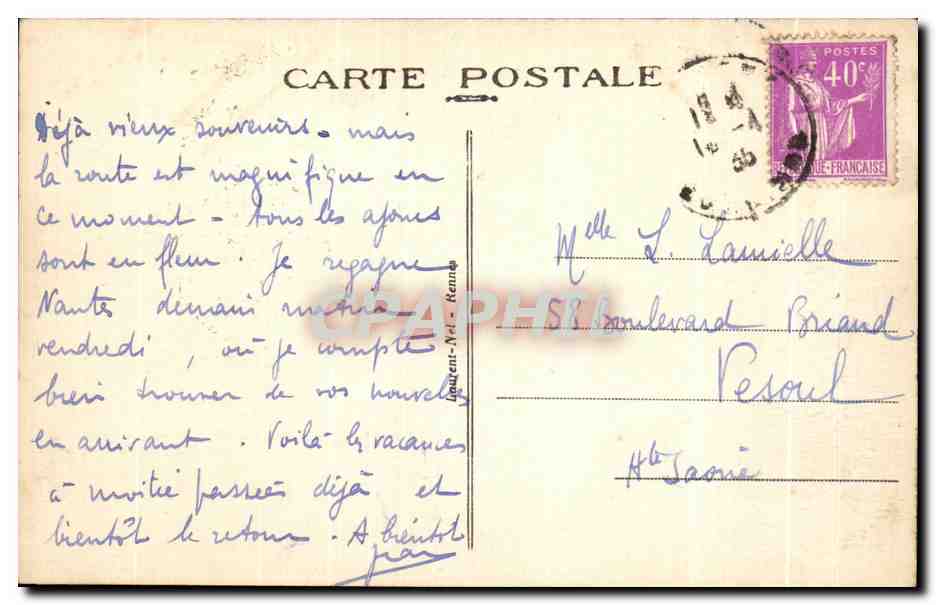 CARTE POSTALE
POSTES
40c
RÉPUBLIQUE-FRANÇAISE
35
Déjà vieux souvenirs - mais
la route est magnifique en
ce moment - tous les ajoncs
sont en fleur. Je regagne
Nantes demain matin
vendredi, où je compte
bien trouver de vos nouvelles
en arrivant. Voilà les vacances
à moitié passées déjà et
bientôt le retour. A bientôt
Laurent-Nel - Rennes
CPAPHIL
Melle L. Lamielle
58 Boulevard Briand
Vesoul
Hte Saône